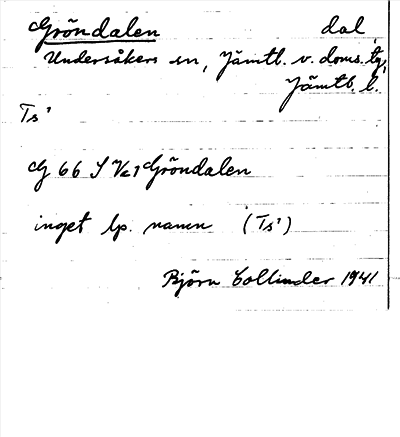 Gröndalen dal
Undersåkers sn, Jämtl. v. doms. tg,
Jämtl. l.
Ts¹
G 66 S V c 1 Gröndalen
inget lp. namn (Ts¹)
Björn Collinder 1941